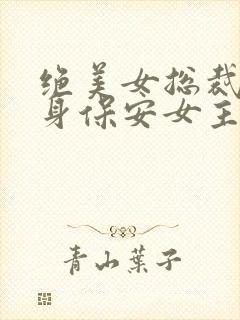 绝美女总裁
身保安女主
青山叶子